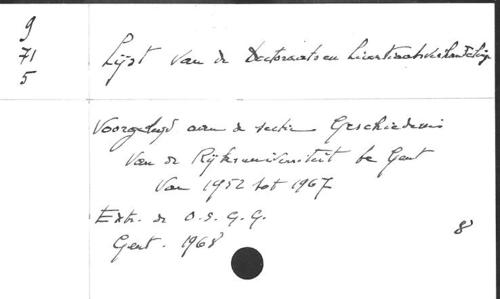 9
71
5
Lijst van de Doctoraats en Licentiaatsverhandelinge
Voorgelegd aan de sectie Geschiedenis
Van de Rijksuniversiteit te Gent
Van 1952 tot 1967
Extr. de O.S.G.G.
Gent. 1968
8